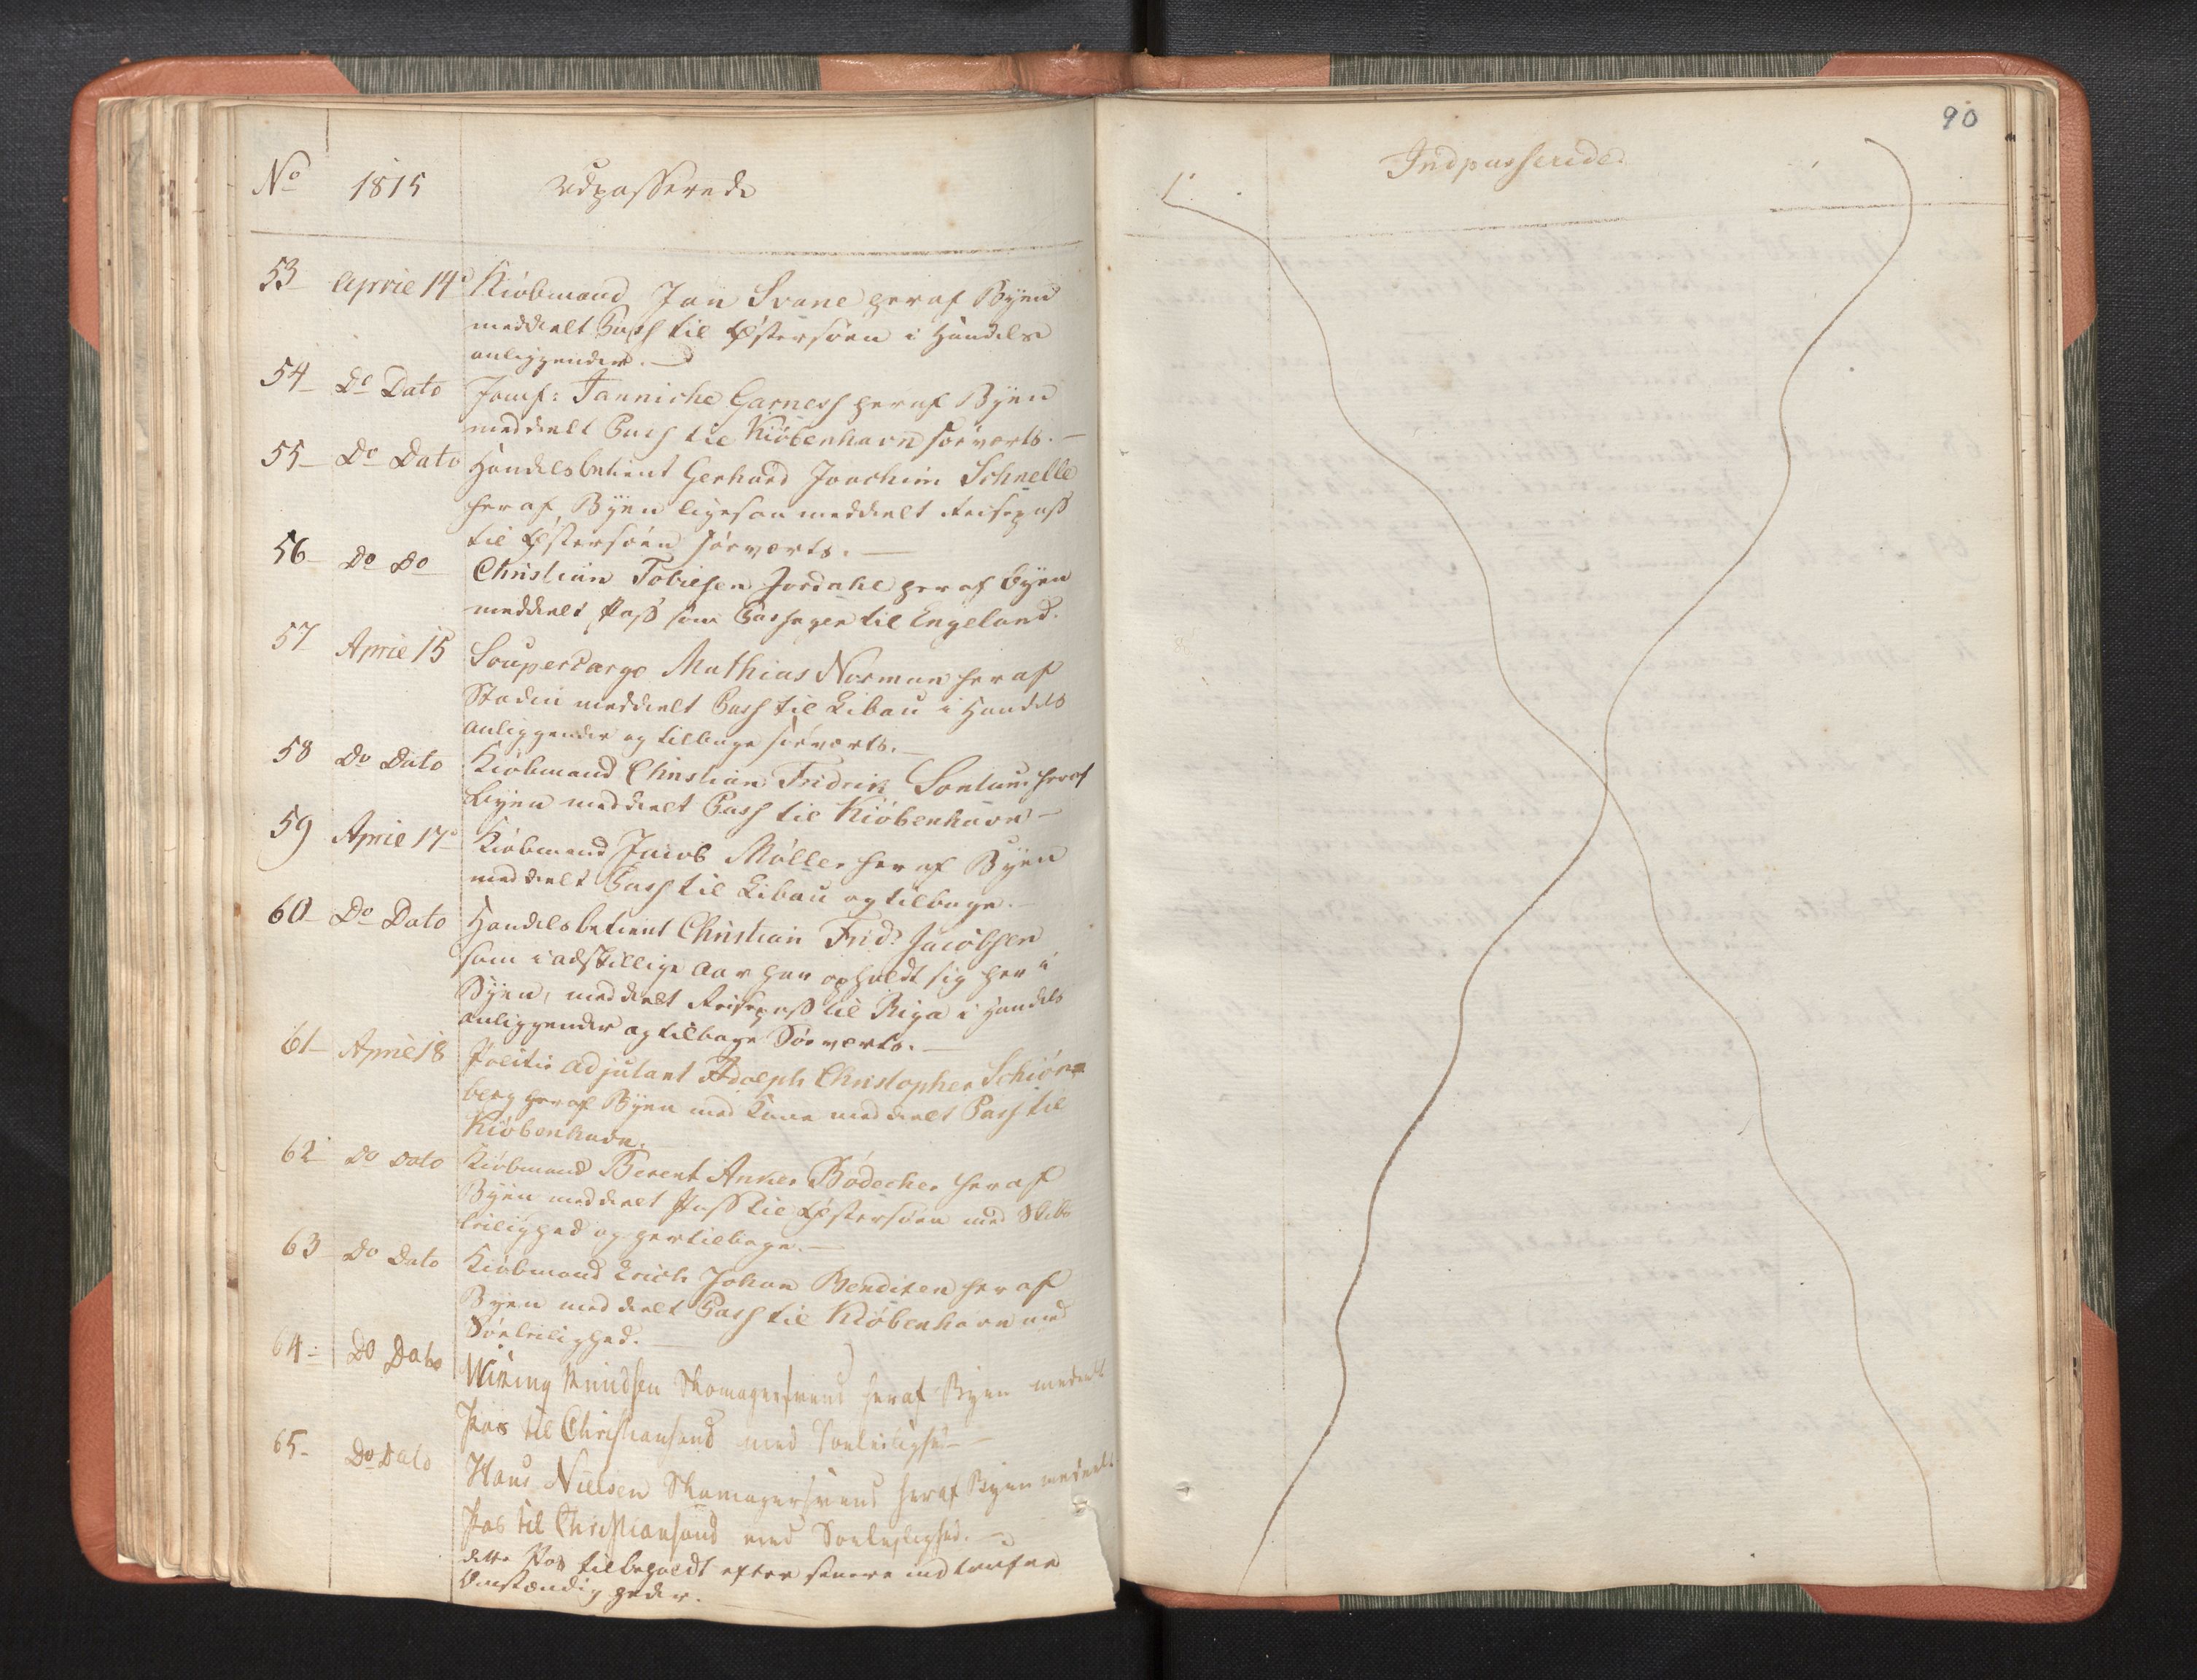 No 1815 Udpasserede
53 Aprie 14d Kiöbmand Jan Svane heraf Byen
meddeelt Pass til Östersöen i Handels
anliggender.
54 Do Dato Jomf: Jannicke Garness heraf Byen
meddeelt Pass til Kiöbenhavn söeværts.
55 Do Dato Handelsbetient Gerhard Joachim Schnelle
heraf Byen ligesaa meddeelt Reisepass
til Östersöen söeværts.
56 Do Do Christian Tobiesen Jordahl heraf Byen
meddeelt Pass som Passager til Engeland.
57 April 15 Soupercargo Mathias Norman heraf
Staden meddeelt Pass til Libau i Handels
anliggender og tilbage söeværts.
58 Do Dato Kiöbmand Christian Fridrik Sontum heraf
Byen meddeelt Pass til Kiöbenhavn
59 April 17d Kiöbmand Jacob Möller heraf Byen
meddeelt Pass til Libau og tilbage.
60 Do Dato Handelsbetient Christian Frid: Jacobsen
som i adskillige Aar har opholdt sig her i
Byen, meddeelt Reisepass til Riga i Handels
anliggender og tilbage Söeværts.
61 April 18 Politie Adjutant Adolph Christopher Schiön
berg heraf Byen med Kone meddeelt Pass til
Kiöbenhavn.
62 Do Dato Kiöbmand Berent Anker Bödecher heraf
Byen meddeelt Pass til Östersöen med Skibs
leilighed og hertilbage.
63 Do Dato Kiöbmand Erich Johan Bendixen heraf
Byen meddeelt Pass til Kiöbenhavn med
Söeleilighed.
64 Do Dato Wiking Knudsen Skomagersvend heraf Byen medeelt
Pas til Christiansand med Soeleilighed
65 Do Dato Hans Nielsen Skomagersvend heraf Byen medeelt
Pas til Christiansand med Soeleylighed.
dette Pas tilbeholdt efter senere indtrufne
Omstændigheder.
90
Indpasserede